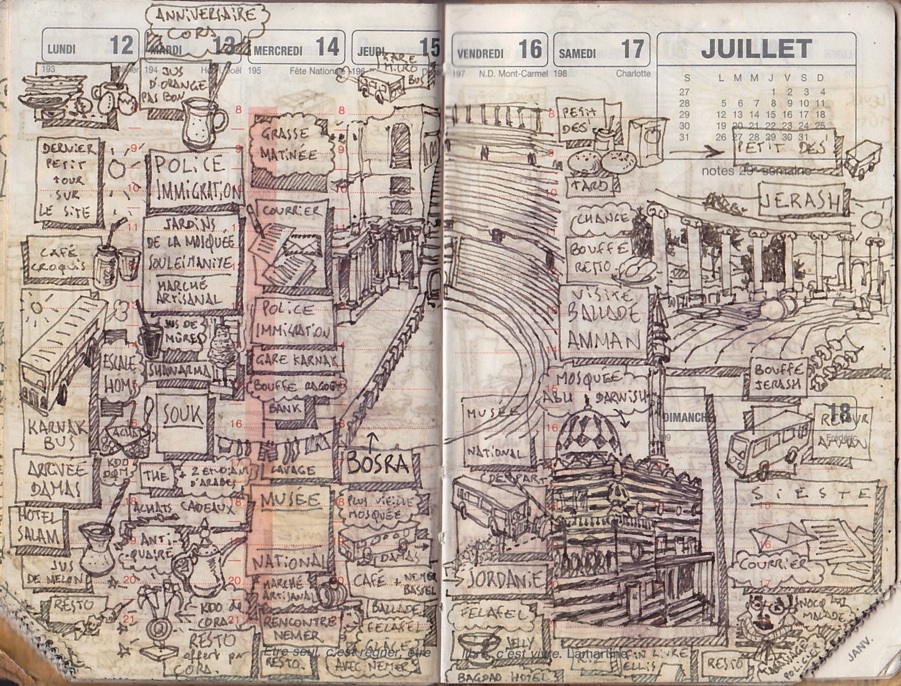 ANNIVERSAIRE
CORA
LUNDI 12
193
DERNIER
PETIT
TOUR
SUR
LE SITE
CAFÉ
CROQUIS
ESCALE
HOMS
KARNAK
BUS
ARRIVÉE
DAMAS
HOTEL
SALAM
JUS
DE MELON
RESTO
MARDI 13
194
JUS
D'ORANGE
PAS BON
POLICE
IMMIGRATION
JARDINS
DE LA MOSQUÉE
SOULEIMANIYE
MARCHÉ
ARTISANAL
JUS DE
MÛRES
SHAWARMA
SOUK
ACHATS
KDO
THÉ
ACHATS CADEAUX
ANTI-
QUAIRE
KDO de
CORA
RESTO
offert par
CORA
MERCREDI 14
195 Fête Nationale
GRASSE
MATINÉE
COURRIER
POLICE
IMMIGRATION
GARE KARNAK
BOUFFE
BANK
LAVAGE
MUSÉE
NATIONAL
MARCHÉ
ARTISANAL
RENCONTRE
NEMER
RESTO
JEUDI 15
196
MICRO
BUS
BOSRA
PLUS VIEILLE
MOSQUÉE
CAFÉ + NEMER
BASSEL
BALLADE
FELAFEL
AVEC NEMER
Etre seul, c'est régner, être
VENDREDI 16
197 N.D. Mont-Carmel
MUSÉE
NATIONAL
DÉPART
JORDANIE
FELAFEL
JELLY
BAGDAD HOTEL
SAMEDI 17
198 Charlotte
PETIT
DES
TARD
CHANGE
BOUFFE
RESTO
VISITE
BALLADE
AMMAN
MOSQUÉE
ABU DARWISH
libre, c'est vivre. Lamartine
JUILLET
S L M M J V S D
27 1 2 3 4
28 5 6 7 8 9 10 11
29 12 13 14 15 16 17 18
30 19 20 21 22 23 24 25
31 26 27 28 29 30 31
PETIT DES
notes 29e semaine
JERASH
BOUFFE
JERASH
DIMANCHE 18
RETOUR
AMMAN
SIESTE
COURRIER
MALADE
RESTO
JANV.